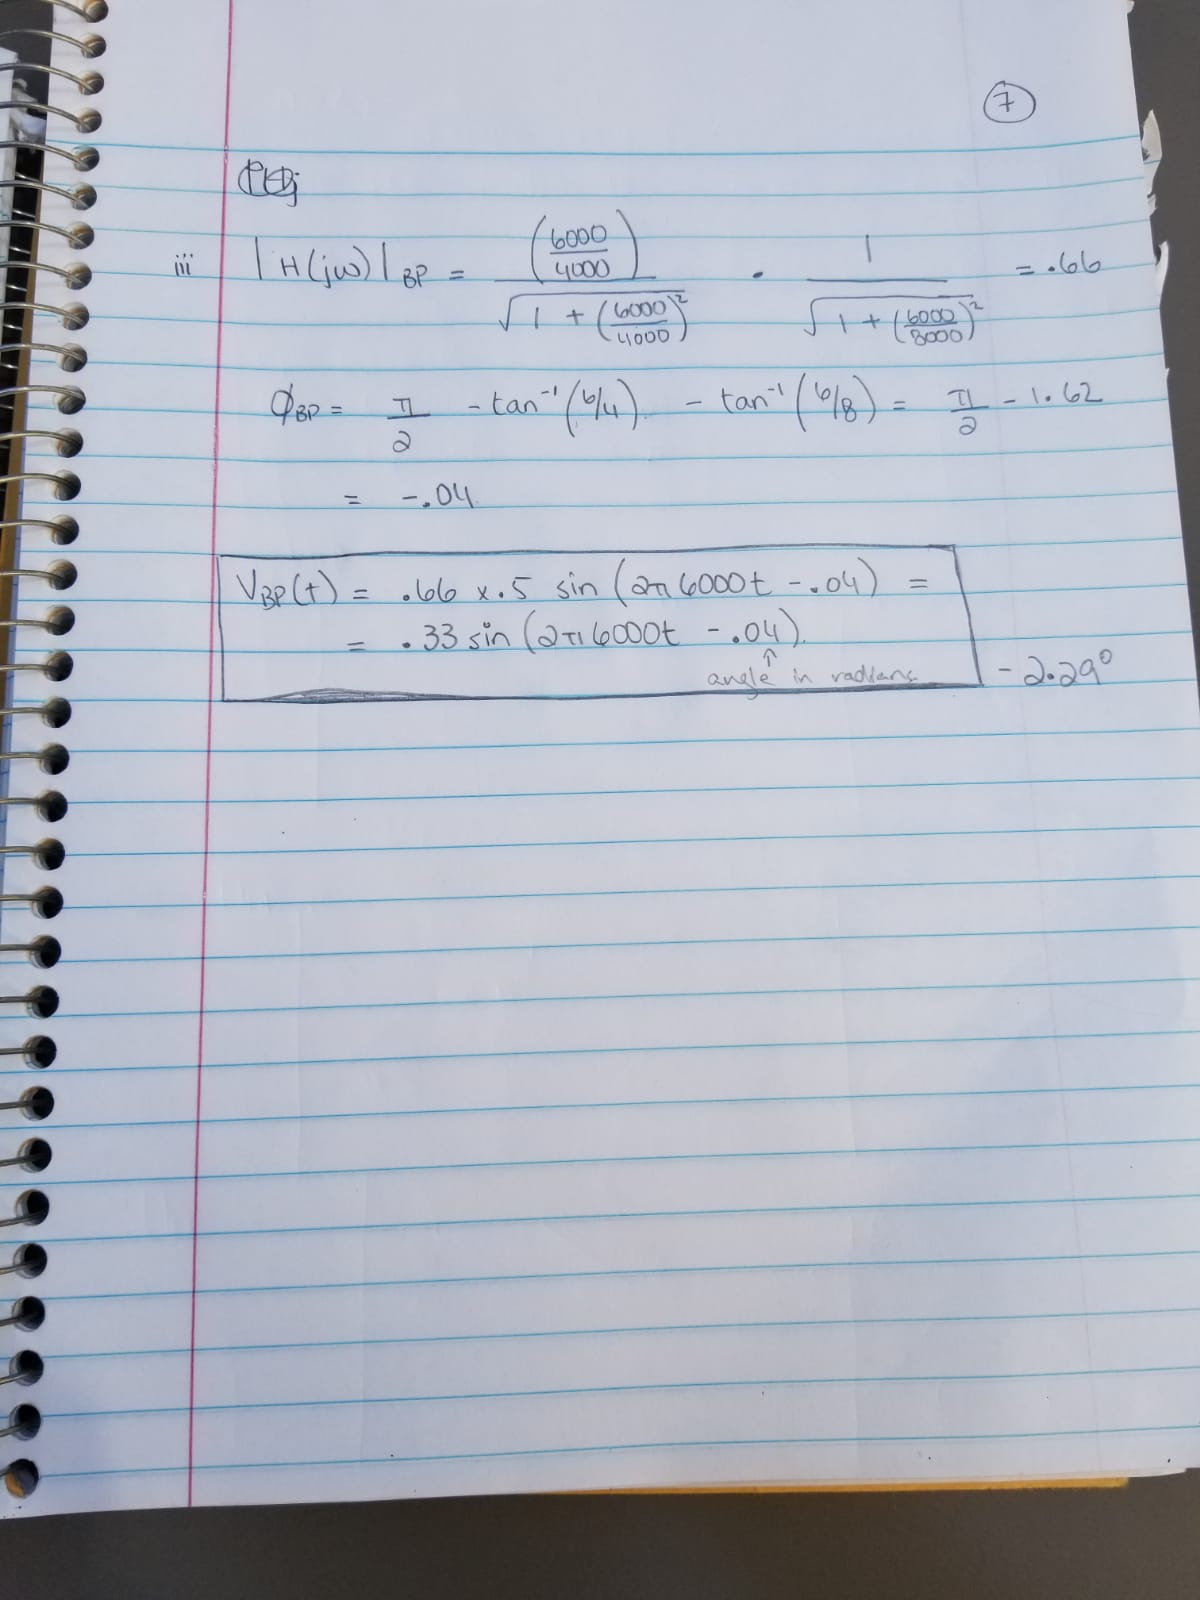 7
iii |H(jω)|BP = (6000/4000) / √(1 + (6000/4000)²) · 1 / √(1 + (6000/8000)²) = .66
ϕBP = π/2 - tan⁻¹(6/4) - tan⁻¹(6/8) = π/2 - 1.62
= -.04
VBP(t) = .66 x .5 sin(2π6000t -.04) =
= .33 sin(2π6000t -.04).
↑
angle in radians
-2.29°